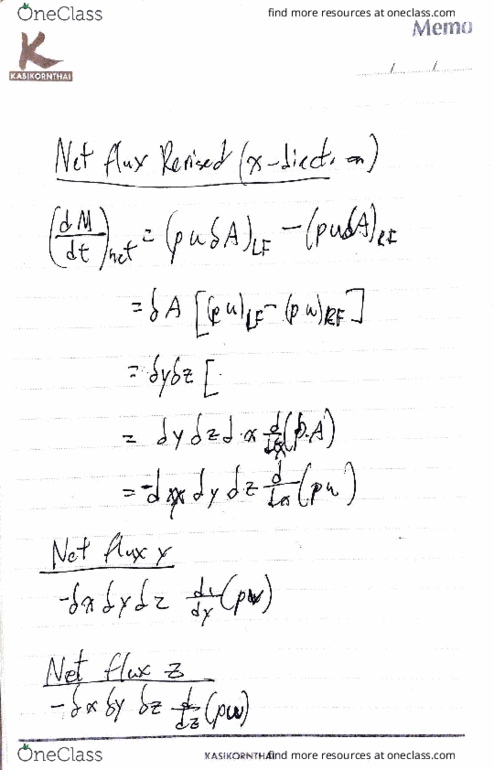 OneClass
find more resources at oneclass.com
Memo
K
KASIKORNTHAI
/ /
Net flux Revised (x-direction)
(dM/dt)net = (ρuδA)LF - (ρuδA)RF
= δA [(ρu)LF - (ρu)RF]
= δyδz [
= dy dz d x d/dx (ρ.A)
= -dx dy dz d/dx (ρu)
Net flux y
-δx δy δz d/dy (ρv)
Net flux z
-δx δy δz d/dz (ρw)
OneClass
KASIKORNTHAI
find more resources at oneclass.com